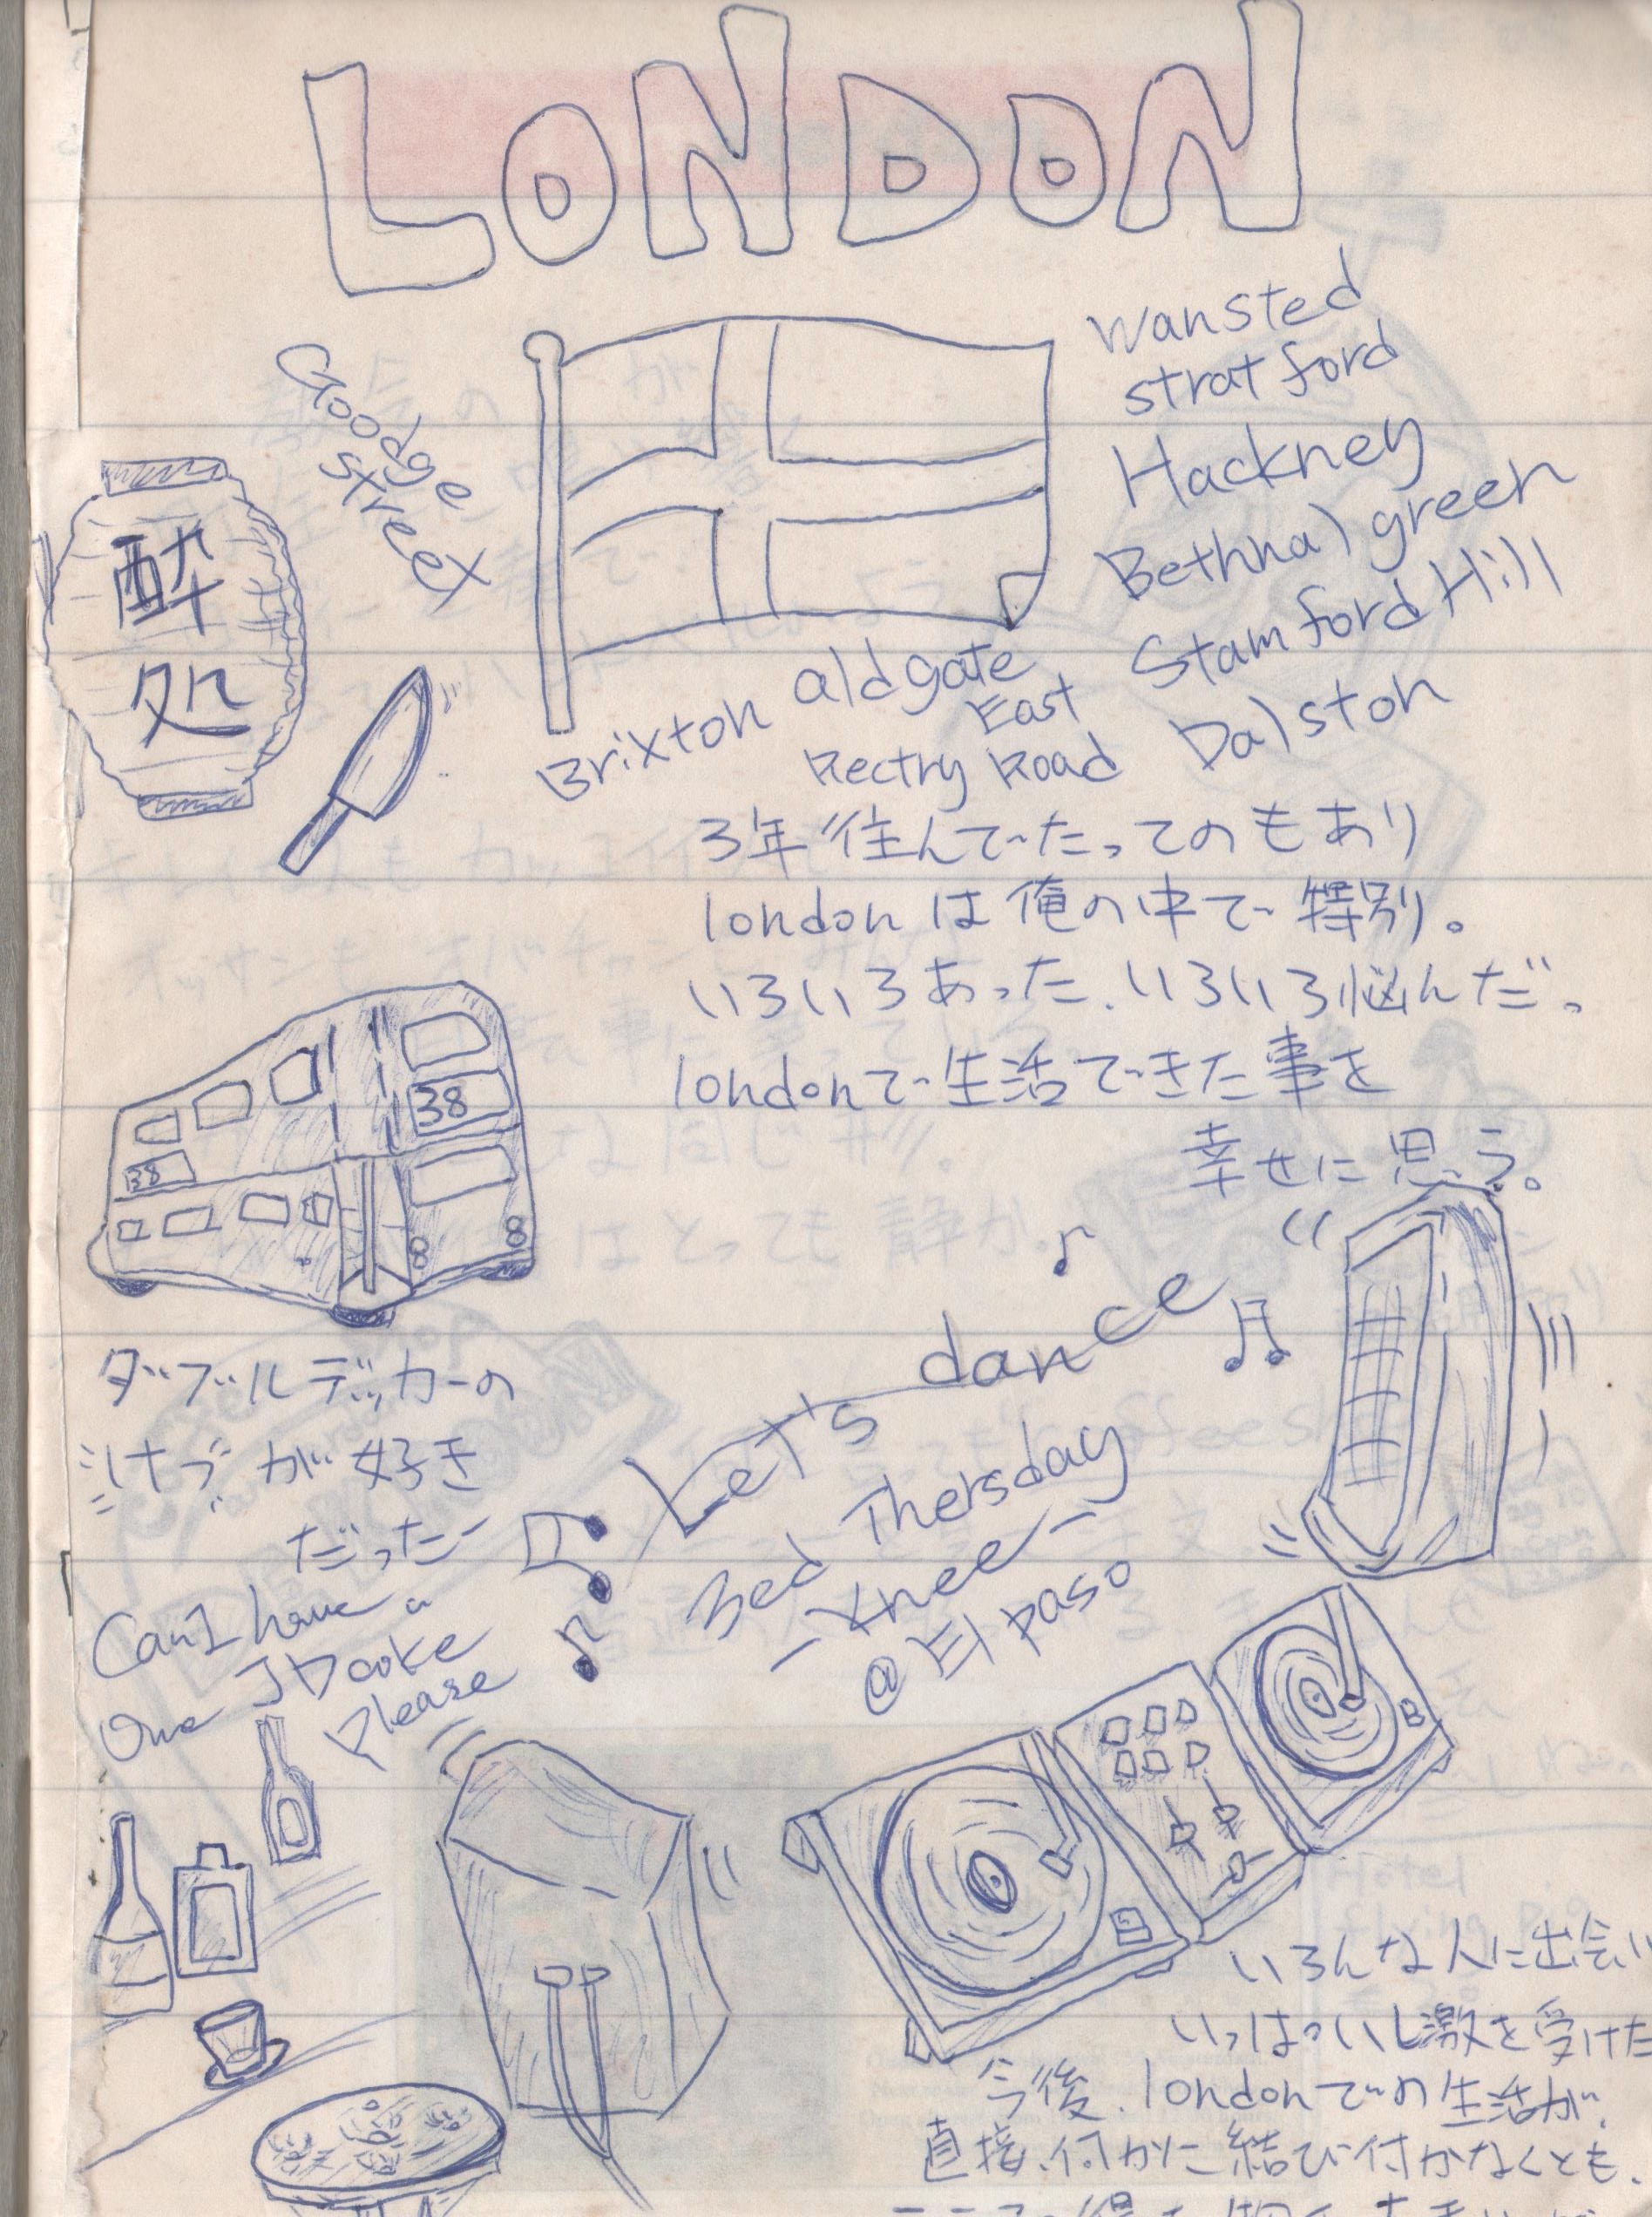 LONDON
Goodge
street
Wansted
stratford
Hackney
Bethnal green
Stamford Hill
Dalston
aldgate
East
Brixton
Rectry Road
酔
処
3年住んでたってのもあり
londonは俺の中で特別。
いろいろあった、いろいろ悩んだ。
londonで生活できた事を
幸せに思う。
38
38
8
8
ダブルデッカーの
ハゲブが好き
だったー
Let's dance
3ed Thersday
-Knee-
@ El paso
Can I have a
One JD coke
Please
B
B
いろんな人に出会い
いっぱいし激を受けた
今後、londonでの生活が、
直接、何かに結び付かなくとも、